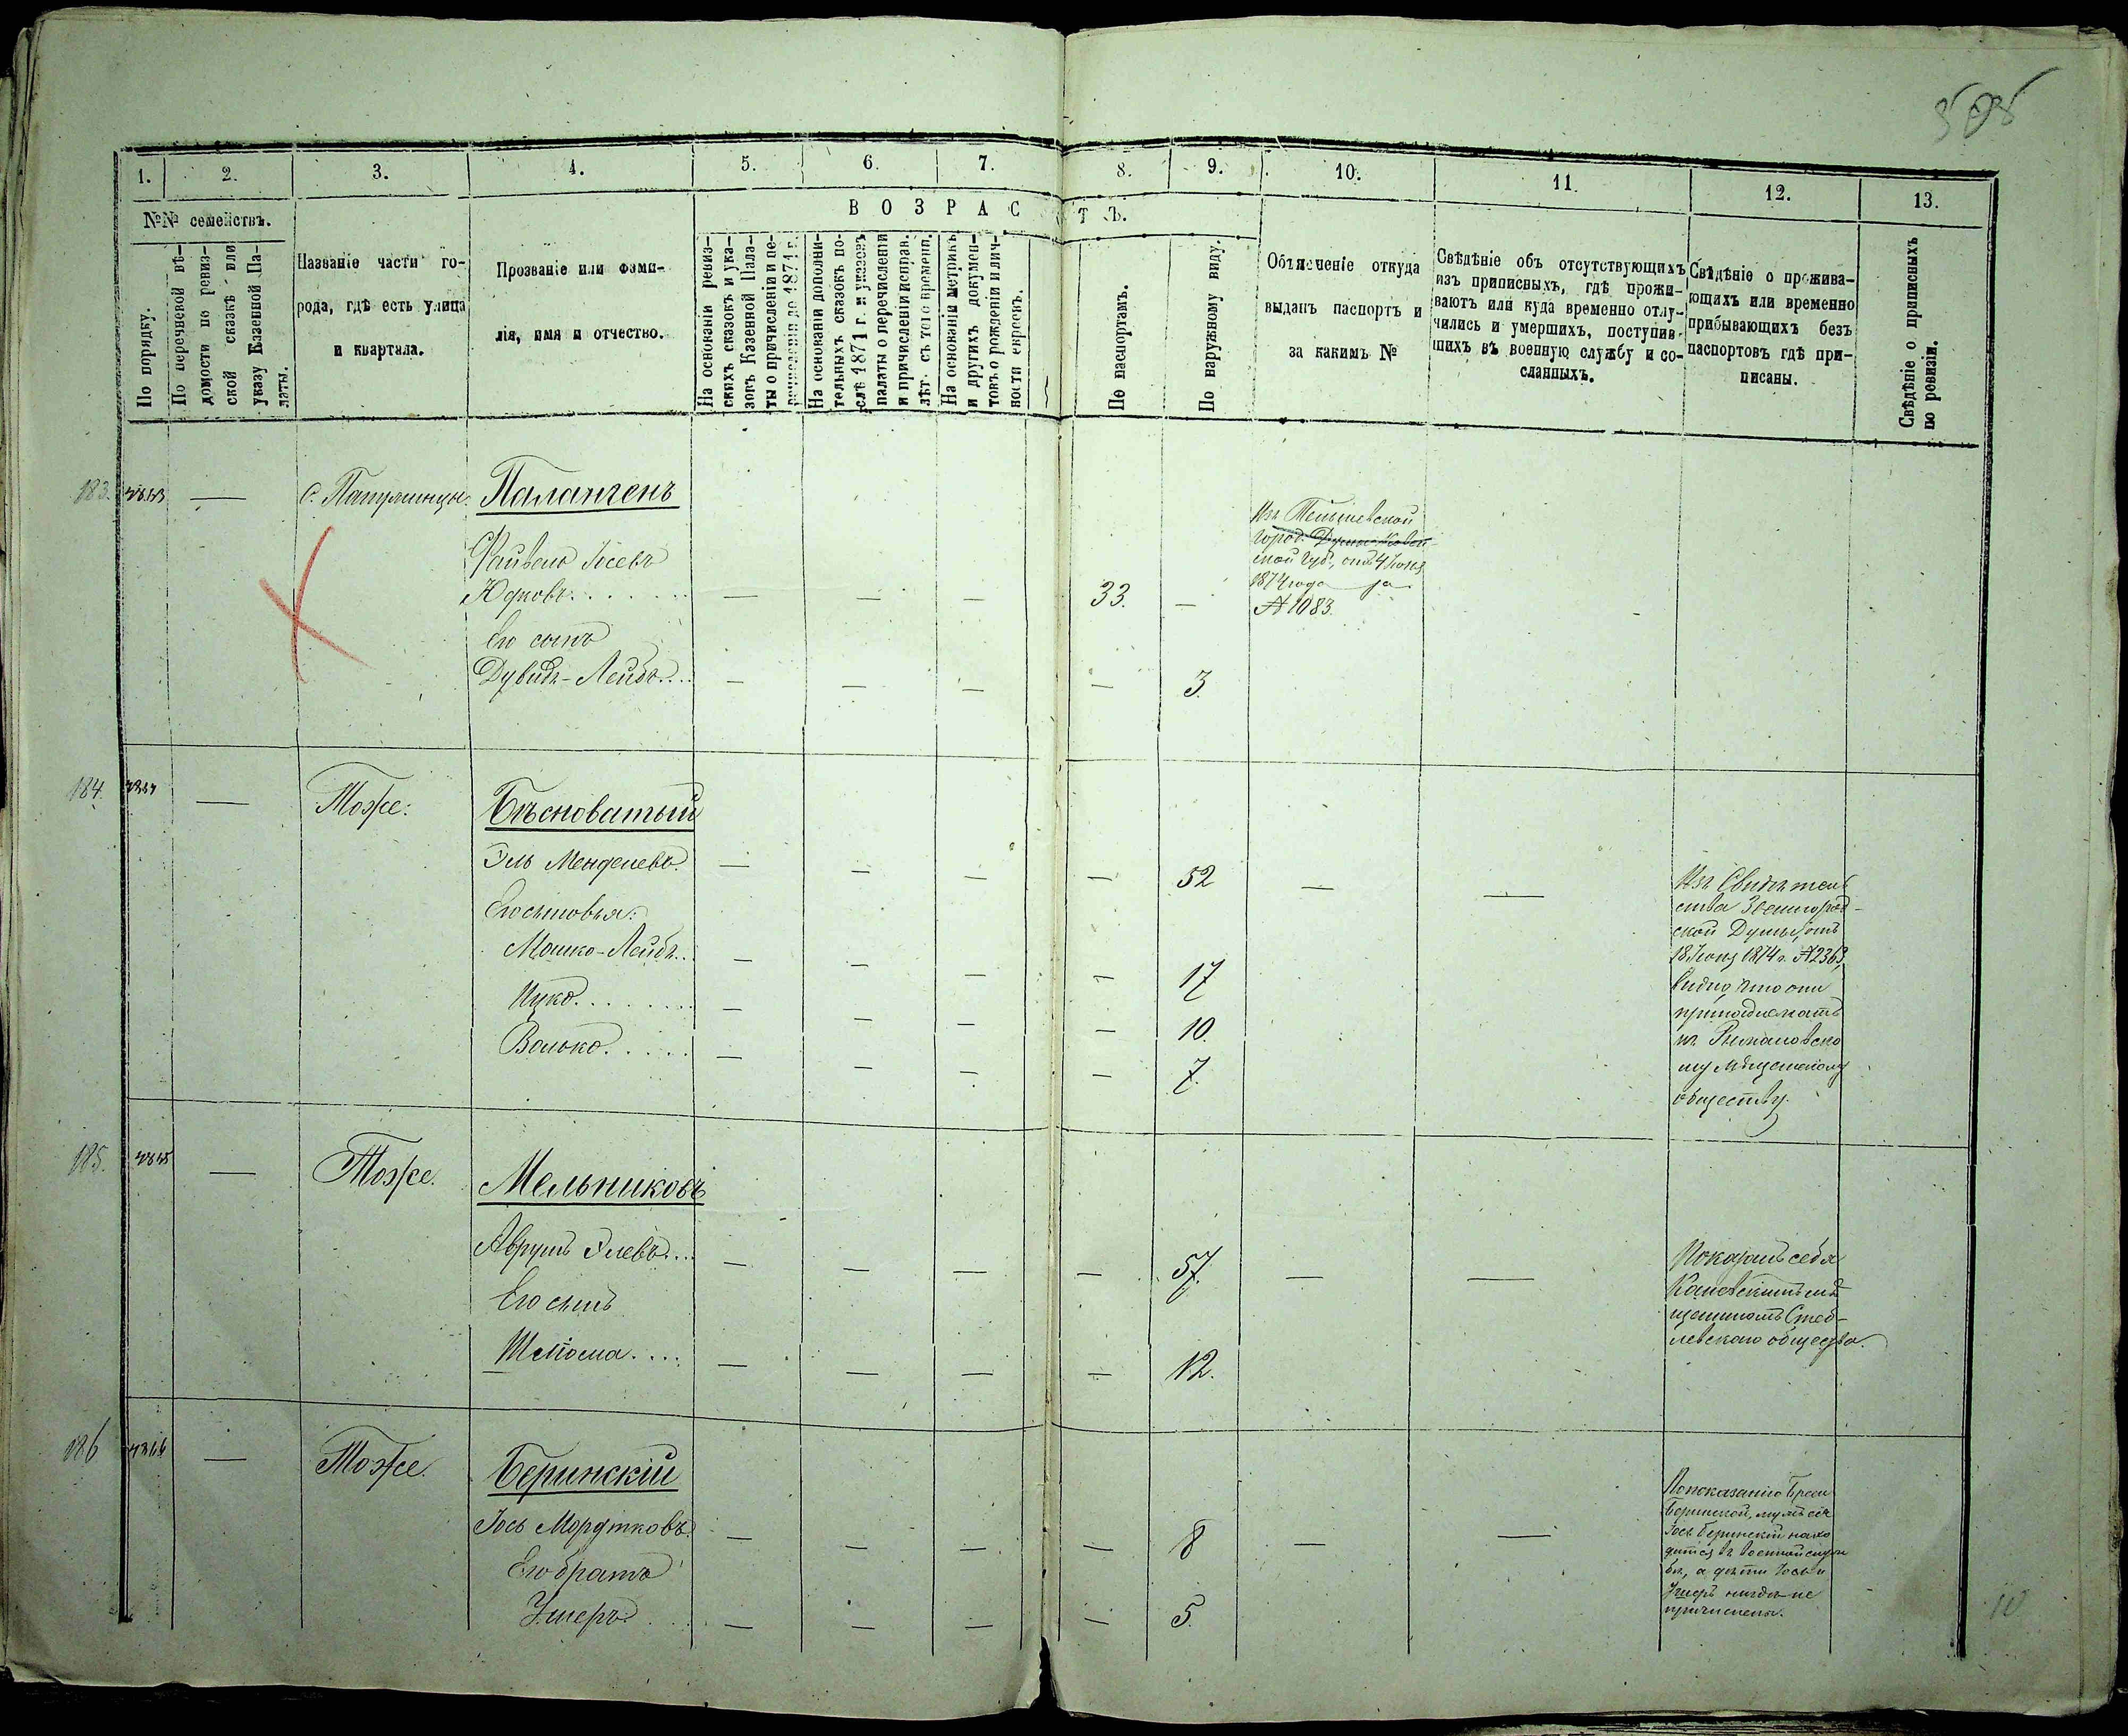 1.
2.
3.
4.
5.
6.
7.
8.
9.
10.
11.
12.
13.
№№ семействъ.
По порядку.
По перечневой вѣ-
домости по ревиз-
ской сказкѣ или
указу Казенной Па-
латы.
Названіе части го-
рода, гдѣ есть улица
и квартала.
Прозваніе или фами-
лія, имя и отчество.
ВОЗРАСТЪ.
На основаніи ревиз-
скихъ сказокъ и ука-
зовъ Казенной Пала-
ты о причисленіи и пе-
речисленіи до 1871 г.
На основаніи дополни-
тельныхъ сказокъ по-
слѣ 1871 г. и указовъ
палаты о перечисленіи
и причисленіи исправ.
лѣт. съ того времени.
На основаніи метрикъ
и другихъ докумен-
товъ о рожденіи и лич-
ности евреевъ.
По паспортамъ.
По наружному виду.
Объясненіе откуда
выданъ паспортъ и
за какимъ №
Свѣдѣніе объ отсутствующихъ
изъ приписныхъ, гдѣ прожи-
ваютъ или куда временно отлу-
чились и умершихъ, поступив-
шихъ въ военную службу и со-
сланныхъ.
Свѣдѣніе о прожива-
ющихъ или временно
прибывающихъ безъ
паспортовъ гдѣ при-
писаны.
Свѣдѣніе о приписныхъ
по ревизіи.
183.
—
Палангенъ
Файвель Іосевъ
Юдковъ
— — — 33. —
Изъ Тельшевской
город. Думы Ковен-
ской губ., отъ 4 Іюня
1874 года за
№ 1083.
Его сынъ
Дувидъ-Лейбъ
— — — — 3.
184.
—
Тоже:
Бѣсноватый
Эль Менделевъ.
— — — — 52 — —
Его сыновья:
Мошко-Лейбъ
— — — — 17
Ицко
— — — — 10.
Волько
— — — — 7.
Изъ Свидѣтель
ства Звенигород-
ской Думы, отъ
18 Іюня 1874 г. № 2363,
видно, что они
принадлежатъ
къ
му Мѣщанскому
обществу.
185.
—
Тоже.
Мельниковъ
Аврумъ Элевъ
— — — — 57. — —
Его сынъ
Шлiома
— — — — 12.
Показалъ себя
Каневскимъ мѣ
щаниномъ Стеб-
левскаго общества.
186
—
Тоже.
Беринскій
Іось Мордковъ
— — — — 8 — —
Его братъ
Ушеръ
— — — — 5.
По показанію
Беринской, мужъ ея
Іось Беринскій нахо
дится въ военной служ
бѣ, а дѣти Іось и
Ушеръ нигдѣ не
причислены.
10